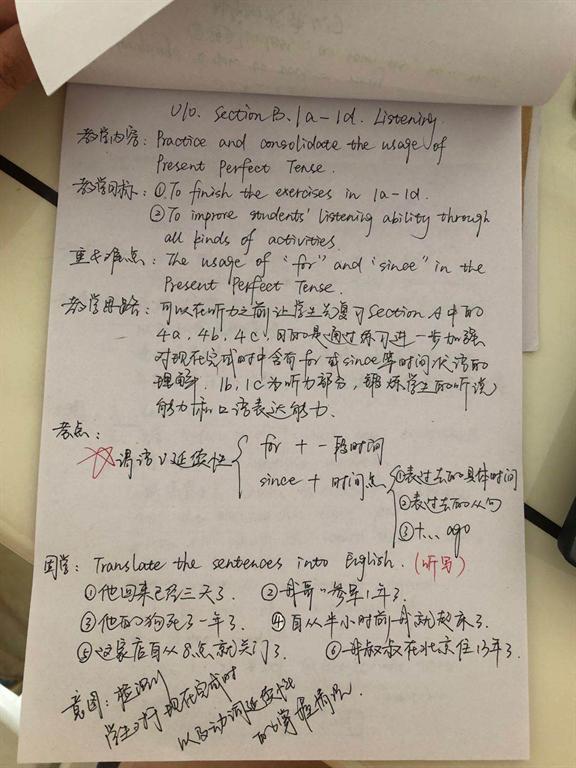 U10. Section B. 1a-1d. Listening.
教学内容: Practice and consolidate the usage of
Present Perfect Tense.
教学目标: ①To finish the exercises in 1a-1d.
②To improve students' listening ability through
all kinds of activities.
重点难点: The usage of "for" and "since" in the
Present Perfect Tense.
教学思路: 可以在听力之前让学生先复习Section A中的
4a, 4b, 4c, 目的是通过练习进一步加强
对现在完成时中含有for或since等时间状语的
理解. 1b, 1c为听力部分, 锻炼学生的听说
能力和口语表达能力.
考点:
谓语V延续性 for + 一段时间
since + 时间点 ①表过去的具体时间
②表过去的从句
③十... ago
困学: Translate the sentences into English. (听写)
①他回来已经三天了. ②我哥哥参军1年了.
③他的狗死了一年了. ④自从半小时前我就起床了.
⑤这家店自从8点就关门了. ⑥我叔叔在北京住13年了.
意图: 检测
学生对现在完成时
以及动词延续性
的掌握情况.